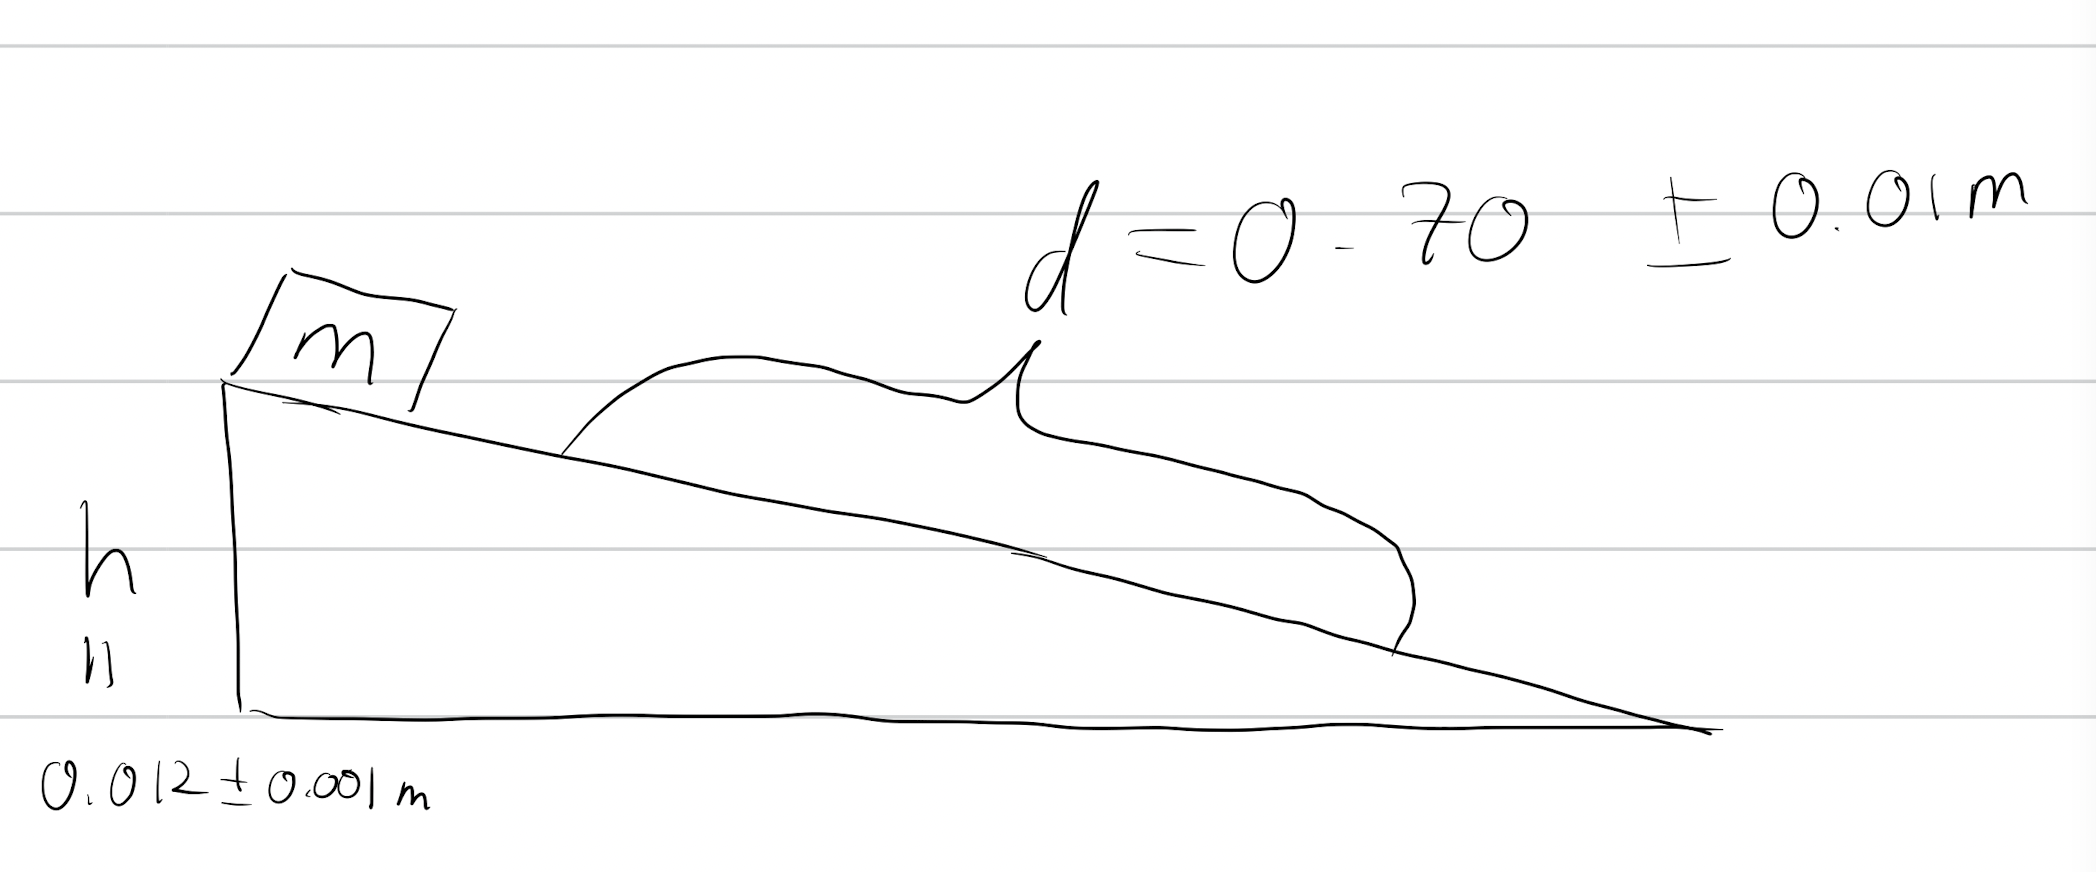 d = 0.70 ± 0.01m
m
h
=
0.012 ± 0.001 m